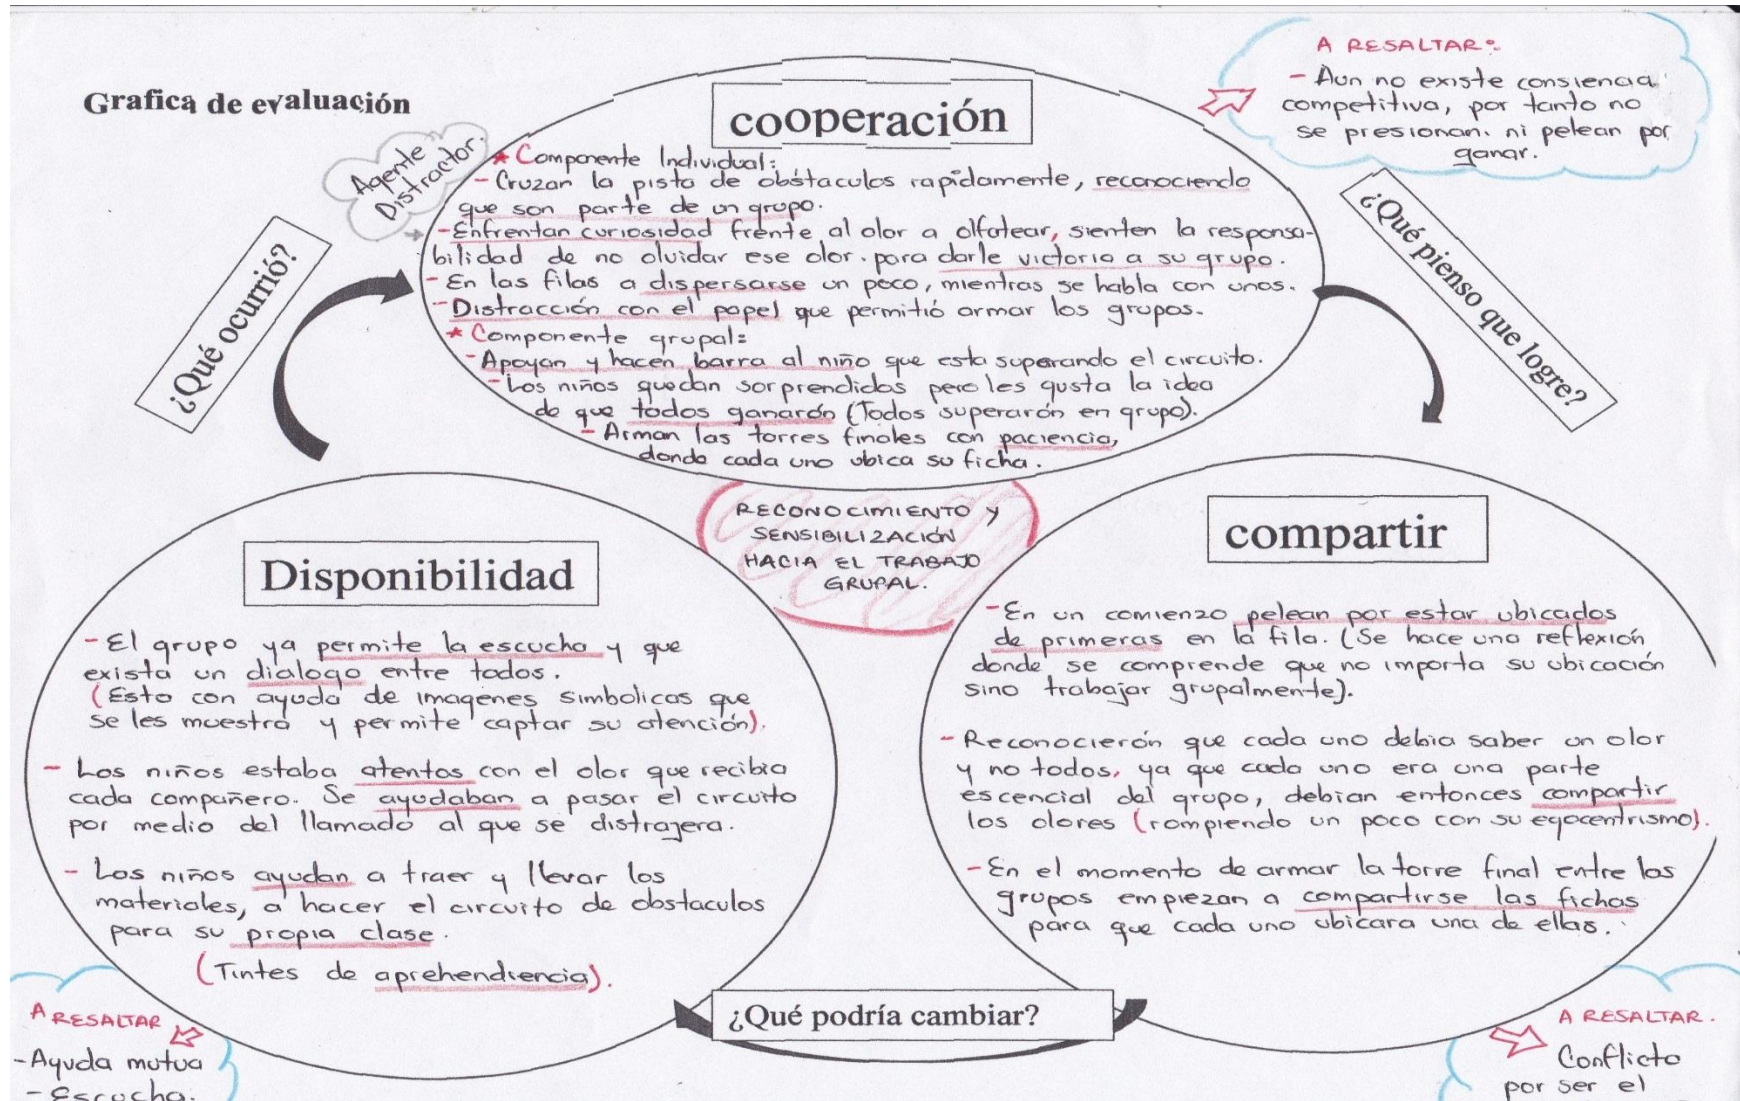 Grafica de evaluación
A RESALTAR:
- Aun no existe consiencia
competitiva, por tanto no
se presionan. ni pelean por
ganar.
cooperación
Agente
Distractor.
* Componente Individual:
- Cruzan la pista de obstaculos rapidamente, reconociendo
que son parte de un grupo.
- Enfrentan curiosidad frente al olor a olfatear, sienten la responsa-
bilidad de no olvidar ese olor. para darle victoria a su grupo.
- En las filas a dispersarse un poco, mientras se habla con unos.
- Distracción con el papel que permitió armar los grupos.
* Componente grupal:
- Apoyan y hacen barra al niño que esta superando el circuito.
- Los niños quedan sorprendidos pero les gusta la idea
de que todos ganarón (Todos superarón en grupo).
- Arman las torres finales con paciencia,
donde cada uno ubica su ficha.
¿Qué ocurrió?
¿Qué pienso que logre?
RECONOCIMIENTO Y
SENSIBILIZACIÓN
HACIA EL TRABAJO
GRUPAL.
Disponibilidad
- El grupo ya permite la escucha y que
exista un dialogo entre todos.
(Esto con ayuda de imagenes simbolicas que
se les muestra y permite captar su atención).
- Los niños estaba atentos con el olor que recibia
cada compañero. Se ayudaban a pasar el circuito
por medio del llamado al que se distrajera.
- Los niños ayudan a traer y llevar los
materiales, a hacer el circuito de obstaculos
para su propia clase.
(Tintes de aprehendiencia).
compartir
- En un comienzo pelean por estar ubicados
de primeras en la fila. (Se hace una reflexión
donde se comprende que no importa su ubicación
sino trabajar grupalmente).
- Reconocierón que cada uno debia saber un olor
y no todos, ya que cada uno era una parte
escencial del grupo, debian entonces compartir
los olores (rompiendo un poco con su egocentrismo).
- En el momento de armar la torre final entre los
grupos empiezan a compartirse las fichas
para que cada uno ubicara una de ellas.
¿Qué podría cambiar?
A RESALTAR
- Ayuda mutua
- Escucha.
A RESALTAR.
Conflicto
por ser el